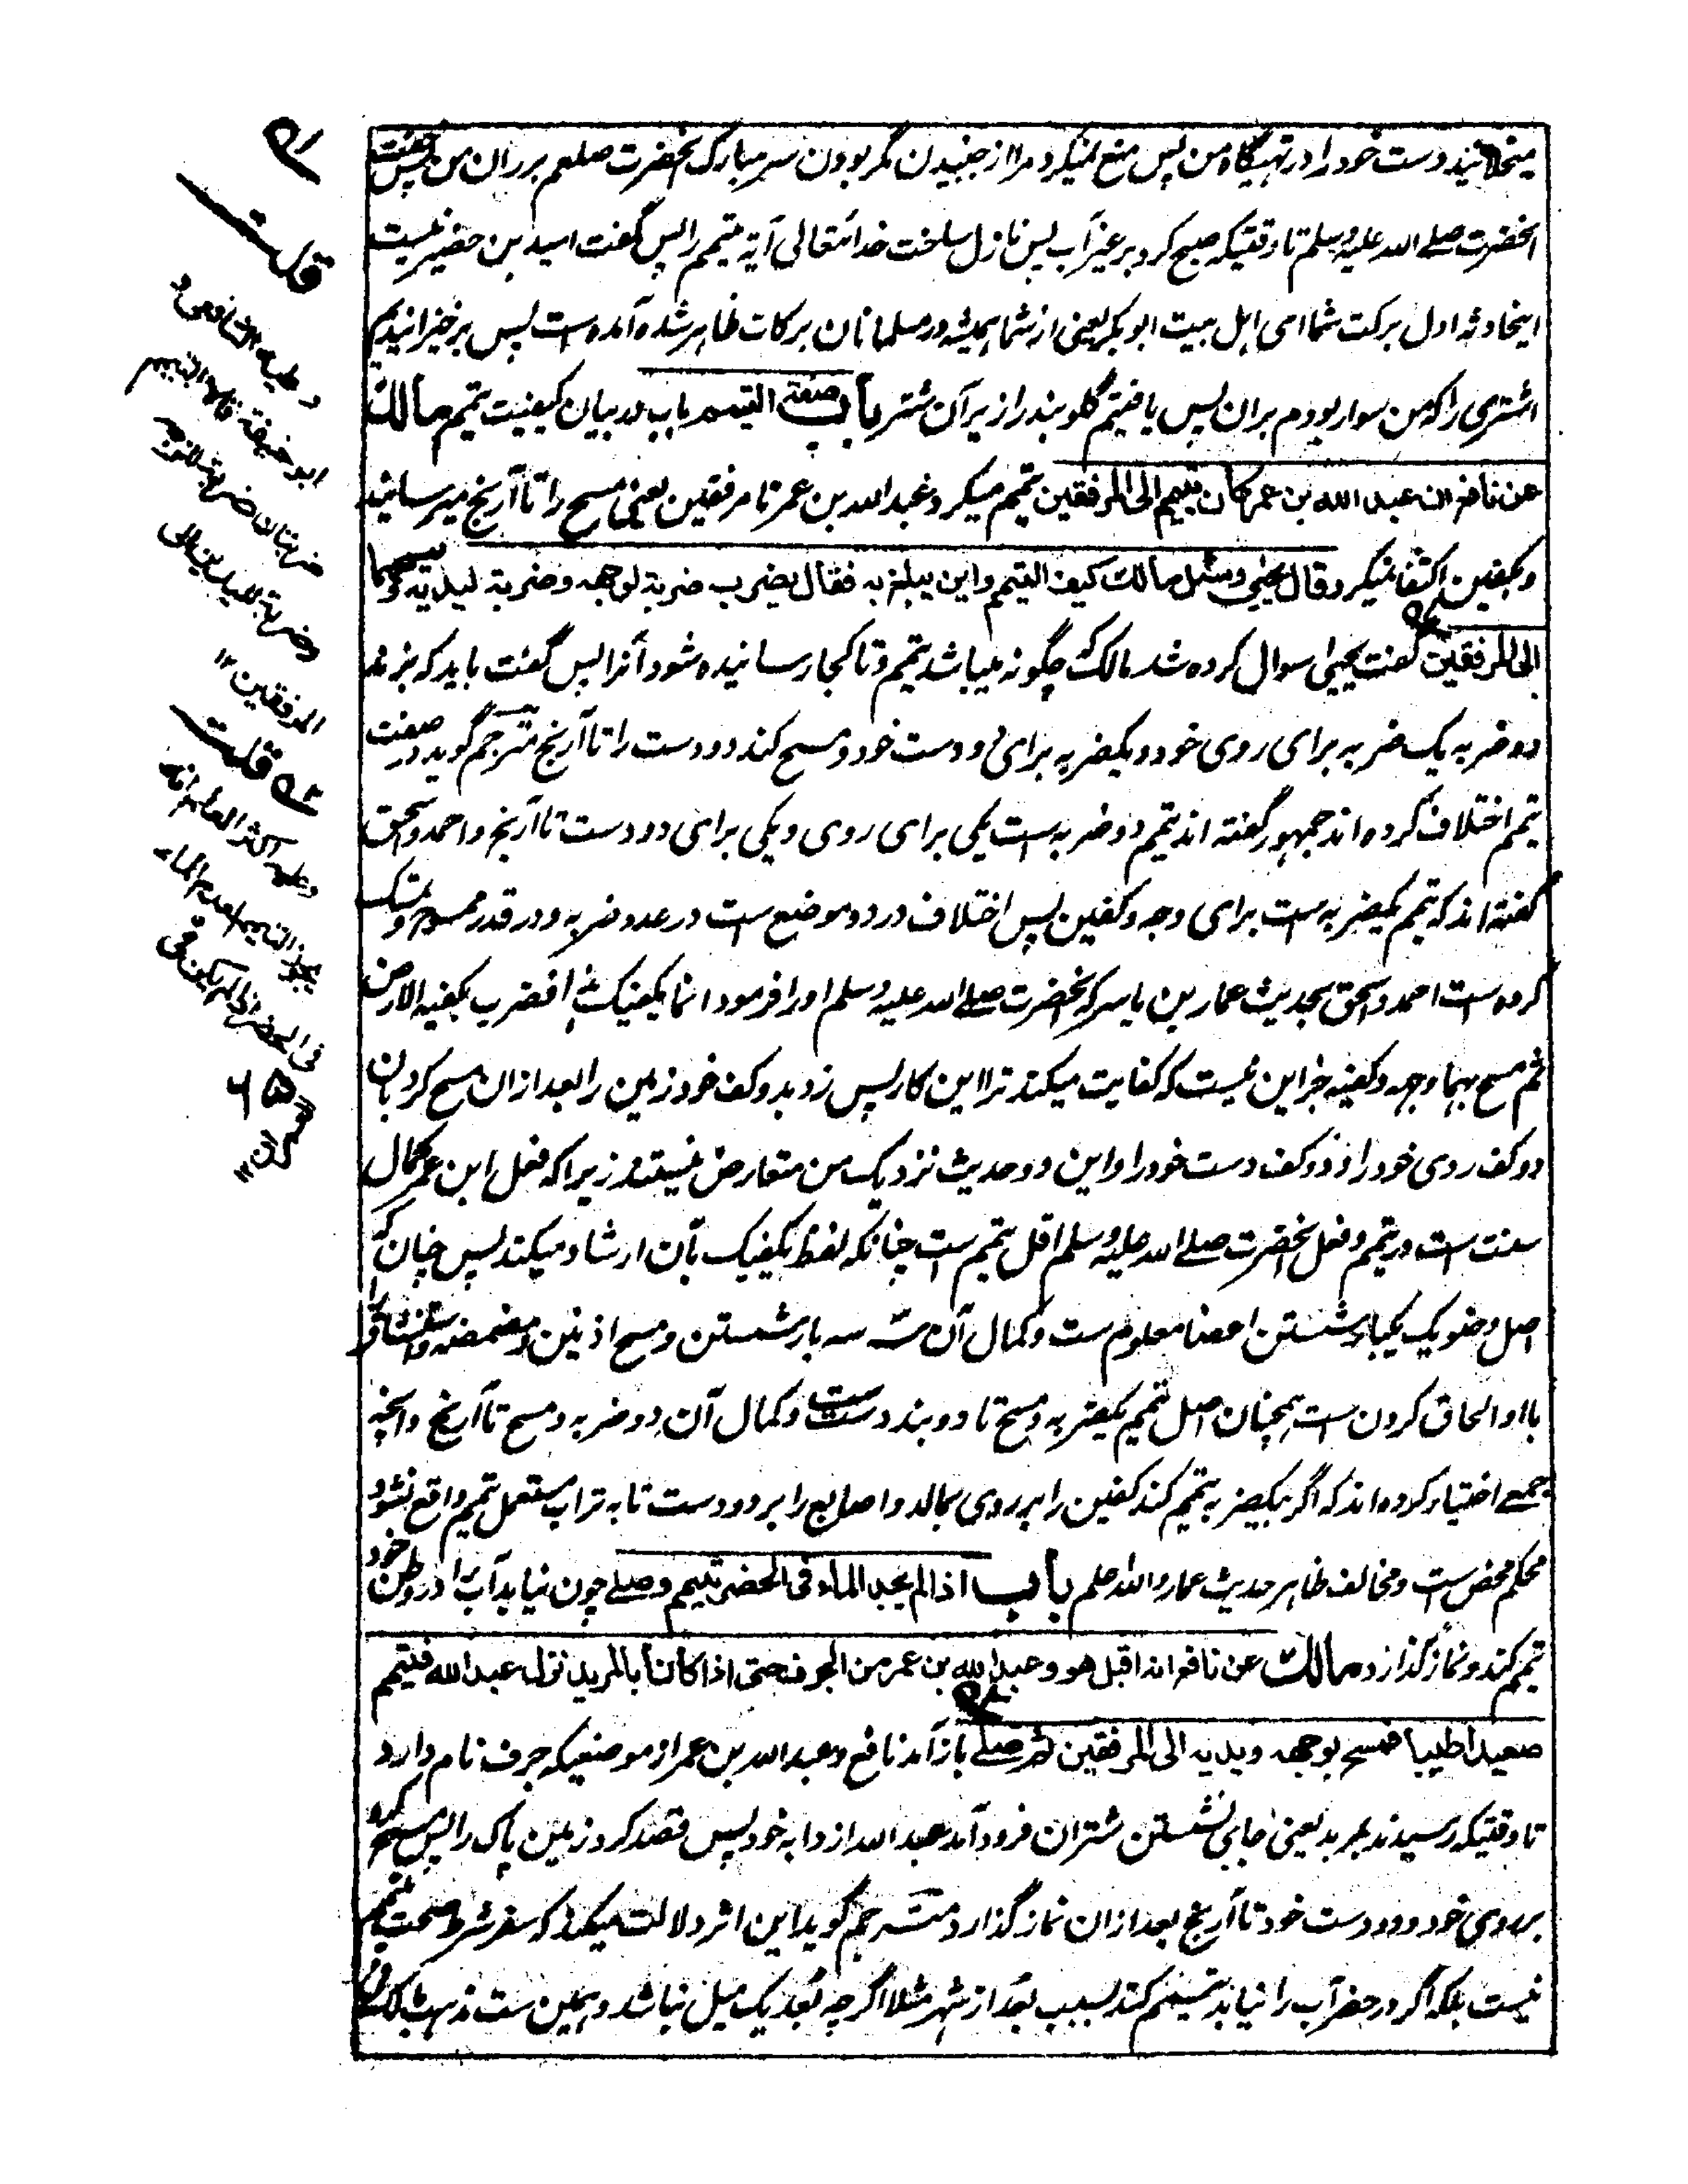 میخلانید دست خود را در تهیگاه من پس منع نمیکرد مرا از جنبیدن مگر بودن سر مبارک آنحضرت صلعم بر ران من پس خفت
آنحضرت صلے الله علیه وسلم تا وقتیکه صبح کرد بر غیر آب پس نازل ساخت خدا تعالی آیه تیمم را پس گفت اسید بن حضیر نیست
اینحادثه اول برکت شما ای اهل بیت ابو بکر یعنی از شما همیشه در مسلمانان برکات ظاهر شده آمده است پس برخیزانیدیم
اشتری را که من سوار بودم بران پس یافتیم گلوبند را زیر آن شتر باب صفة التیمم باب در بیان کیفیت تیمم مالك
عن نافع ان عبد الله بن عمر كان يتيمم الى المرفقين تیمم میکرد عبد الله بن عمر تا مرفقین یعنی مسح را تا آرنج میرسانید
و بکفین اکتفا نمیکرد قال يحيى وسئل مالك كيف التيمم واين يبلغ به فقال يضرب ضربة لوجهه وضربة ليديه ويمسحهما
الى المرفقين گفت یحیی سوال کرده شد مالک چگونه میباشد تیمم و تا کجا رسانیده شود آنرا پس گفت باید که بزند
دو ضربه یک ضربه برای روی خود و یکضربه برای دو دست خود و مسح کند دو دست را تا آرنج مترجم گوید در صفت
تیمم اختلاف کرده اند جمهور گفته اند تیمم دو ضربه است یکی برای روی و یکی برای دو دست تا آرنج و احمد و اسحق
گفته اند که تیمم یکضربه است برای وجه و کفین پس اختلاف در دو موضع است در عدد ضربه و در قدر ممسوح و تمسک
کرده است احمد و اسحق بحدیث عمار بن یاسر که آنحضرت صلے الله علیه وسلم او را فرمود انما یکفیک هذا فضرب بکفیه الارض
ثم مسح بهما وجهه و کفیه جز این نیست که کفایت میکند ترا این کار پس زد بدو کف خود زمین را بعد ازان مسح کرد بآن
دو کف روی خود را و دو کف دست خود را و این دو حدیث نزدیک من متعارض نیستند زیرا که فعل ابن عمر کمال
سنت است در تیمم و فعل آنحضرت صلے الله علیه وسلم اقل تیمم است چنانکه لفظ یکفیک بآن ارشاد میکند پس چنان که
اصل وضو یک یکبار شستن اعضا معلوم است و کمال آن سه سه بار شستن و مسح اذنین و مضمضه و استنشاق را
با او الحاق کردن است همچنان اصل تیمم یکضربه و مسح تا دو بند دست است و کمال آن دو ضربه و مسح تا آرنج و آنچه
جمعے اختیار کرده اند که اگر بیکضربه تیمم کند کفین را بر روی بمالد و اصابع را بر دو دست تا به تراب مستعمل تیمم واقع نشود
محکم محض است و مخالف ظاهر حدیث عمار والله اعلم باب اذا لم يجد الماء فى الحضر تيمم وصلے چون نیابد آب را در وطن خود
تیمم کند و نماز گذارد مالك عن نافع انه اقبل هو وعبد الله بن عمر من الجرف حتى اذا كانا بالمربد نزل عبد الله فتيمم
صعيدا طيبا فمسح بوجهه ويديه الى المرفقين ثم صلے باز آمد نافع و عبد الله بن عمر از موضعیکه جرف نام دارد
تا وقتیکه رسیدند بمربد یعنی جای نشستن شتران فرود آمد عبد الله از دابه خود پس قصد کرد زمین پاک را پس مسح کرد
بر روی خود و دو دست خود تا آرنج بعد ازان نماز گذارد مترجم گوید این اثر دلالت میکند که سفر شرط صحت تیمم
نیست بلکه اگر در حضر آب را نیابد تیمم کند بسبب بعد از شهر مثلا اگر چه بعد یک میل نباشد و همین است مذهب مالک
قلت
وعليه الشافعى و
ابو حنيفة قالا التيمم
ضربتان ضربة للوجه
وضربة لليدين الى
المرفقين ۱۲
قلت
وعليه اكثر العلماء انه
يجوز التيمم لعدم الماء
فى الحضر